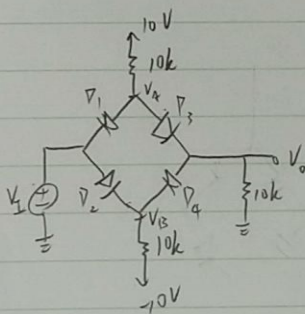 10V
10k
VA
D1
D3
VI
+
D2
D4
Vo
10k
VB
10k
-10V